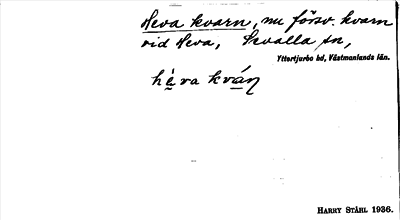 Heva kvarn, nu försv. kvarn
vid Heva, Skvalla sn,
Yttertjurbo hd, Västmanlands län.
hè̱va kvá̱ṇ
HARRY STÅHL 1936.